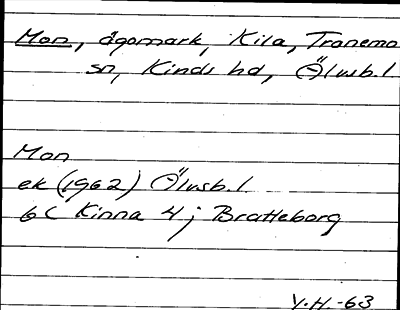 Mon, ägomark, Kila, Tranemo
sn, Kinds hd, Älvsb. l
Mon
ek (1962) Älvsb. l
6C Kinna 4 j Bratteborg
V.H.-63